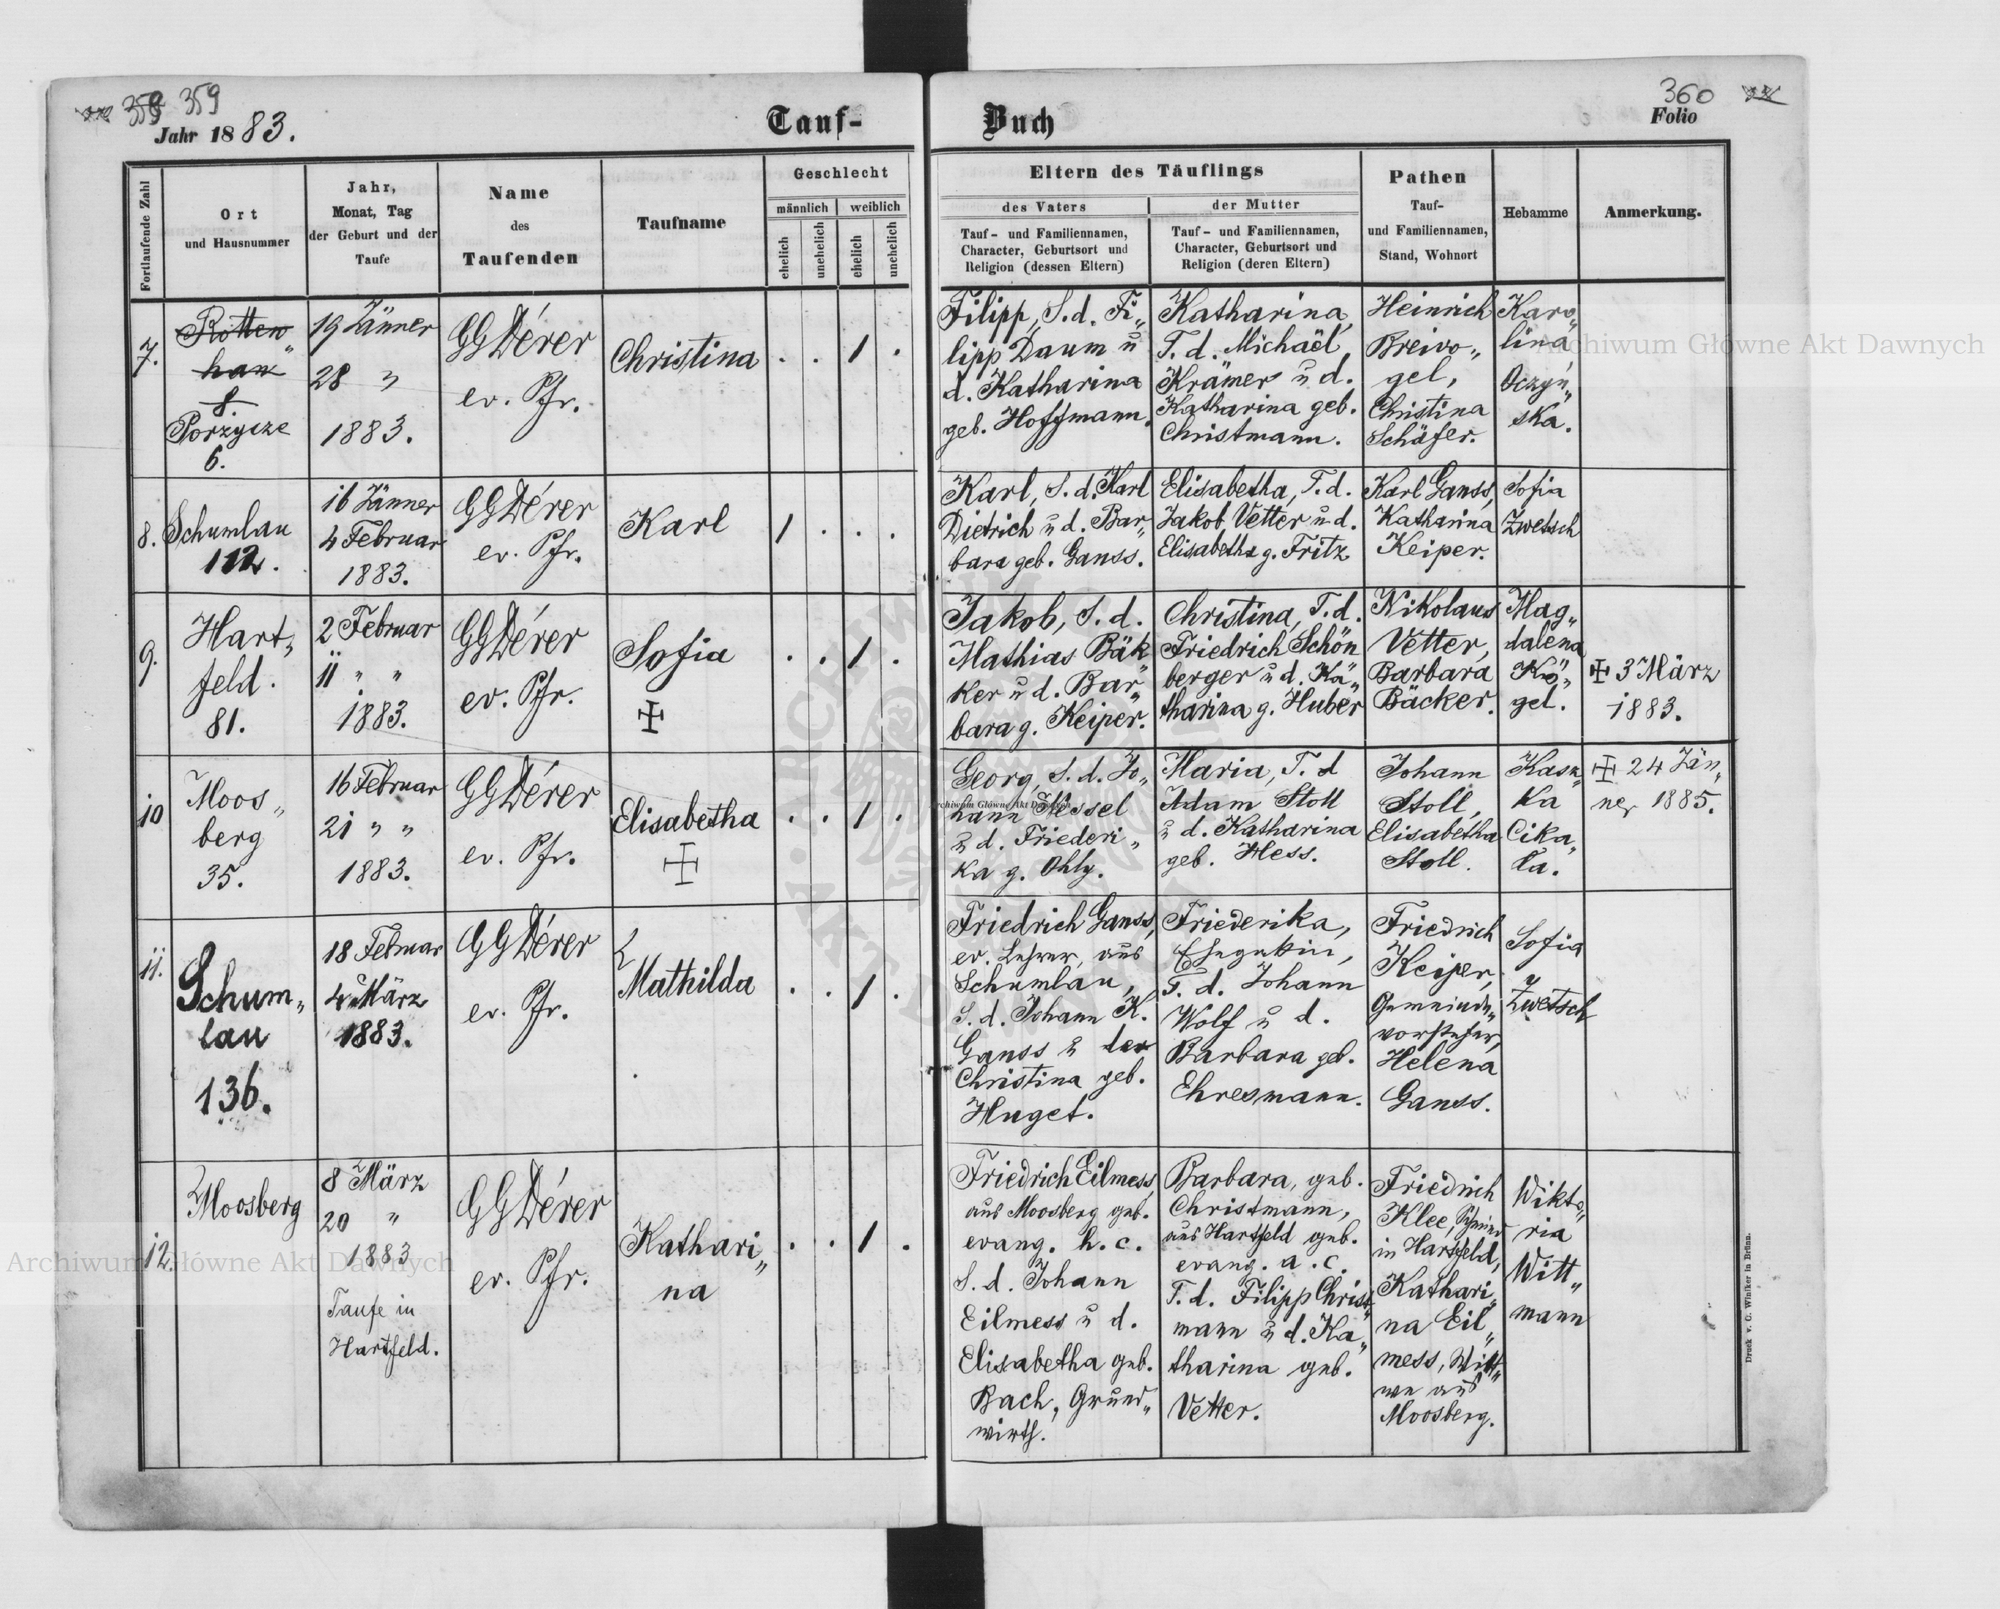 359 359
Jahr 1883.
Tauf-
Buch
360
Folio
Fortlaufende Zahl
Ort
und Hausnummer
Jahr,
Monat, Tag
der Geburt und der
Taufe
Name
des
Taufenden
Taufname
Geschlecht
männlich
weiblich
ehelich
unehelich
ehelich
unehelich
Eltern des Täuflings
des Vaters
der Mutter
Tauf- und Familiennamen,
Character, Geburtsort und
Religion (dessen Eltern)
Tauf- und Familiennamen,
Character, Geburtsort und
Religion (deren Eltern)
Pathen
Tauf-
und Familiennamen,
Stand, Wohnort
Hebamme
Anmerkung.
7.
Rotten„
han
8.
Porzycze
6.
19 Jänner
28 "
1883.
GGDérer
ev. Pfr.
Christina
. . 1 .
Filipp, S. d. Fi„
lipp Daum u
d. Katharina
geb. Hoffmann.
Katharina,
T. d. Michaël
Krämer u d.
Katharina geb.
Christmann.
Heinrich
Breivo„
gel,
Christina
Schäfer.
Karo„
lina
Oczyń„
ska.
8.
Schumlau
112.
16 Jänner
4 Februar
1883.
GGDérer
ev. Pfr.
Karl
1 . . .
Karl, S. d. Karl
Dietrich u d. Bar„
bara geb. Ganss.
Elisabetha, T. d.
Jakob Vetter u d.
Elisabetha g. Fritz
Karl Ganss,
Katharina
Keiper.
Sofia
Zwetsch
9.
Hart„
feld.
81.
2 Februar
11 " "
1883.
GGDérer
ev. Pfr.
Sofia
. . 1 .
Jakob, S. d.
Mathias Bäk„
ker u d. Bar„
bara g. Keiper.
Christina, T. d.
Friedrich Schön
berger u d. Ka„
tharina g. Huber
Nikolaus
Vetter,
Barbara
Bäcker.
Mag„
dalena
Kö„
gel.
3 März
1883.
10
Moos„
berg
35.
16 Februar
21 " "
1883.
GGDérer
ev. Pfr.
Elisabetha
. . 1 .
Georg, S. d. Jo„
hann Hessel
u d. Friederi„
ka g. Ohly.
Maria, T. d
Adam Stoll
u d. Katharina
geb. Hess.
Johann
Stoll,
Elisabetha
Stoll.
Kasz„
ka
Cika„
ła.
24 Jän„
ner 1885.
11.
Schum„
lau
136.
18 Februar
4 März
1883.
GGDérer
ev. Pfr.
Mathilda
. . 1 .
Friedrich Ganss,
ev. Lehrer, aus
Schumlau,
S. d. Johann K.
Ganss u der
Christina geb.
Huget.
Friederika,
Ehegattin,
T. d. Johann
Wolf u d.
Barbara geb.
Ehresmann.
Friedrich
Keiper,
Gemeinde„
vorsteher,
Helena
Ganss.
Sofia
Zwetsch
12.
Moosberg
8 März
20 "
1883
Taufe in
Hartfeld.
GGDérer
ev. Pfr.
Kathari„
na
. . 1 .
Friedrich Eilmess,
aus Moosberg geb.
evang. h. c.
S. d. Johann
Eilmess u d.
Elisabetha geb.
Bach, Grund„
wirth.
Barbara, geb.
Christmann,
aus Hartfeld geb.
evang. a. c.
T. d. Filipp Christ„
mann u d. Ka„
tharina geb.
Vetter.
Friedrich
Klee,
in Hartfeld,
Kathari„
na Eil„
mess, Witt„
we aus
Moosberg.
Wikto„
ria
Witt„
mann
Druck v. C. Winiker in Brünn.
Archiwum Główne Akt Dawnych
Archiwum Główne Akt Dawnych
Archiwum Główne Akt Dawnych